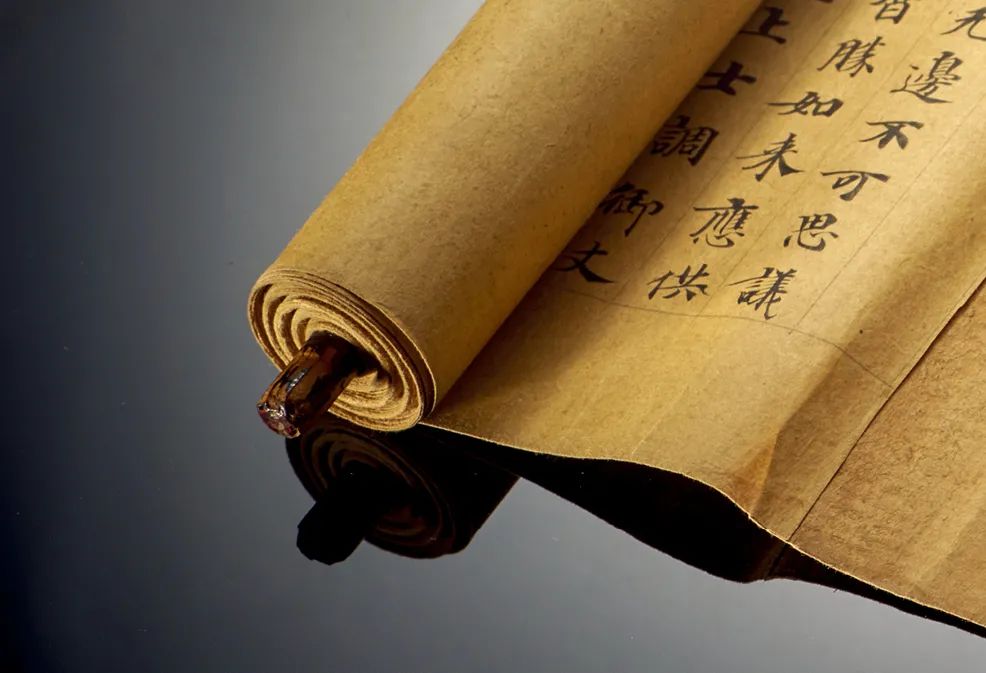 无邊不可思議
勝如来應供
上士調御丈